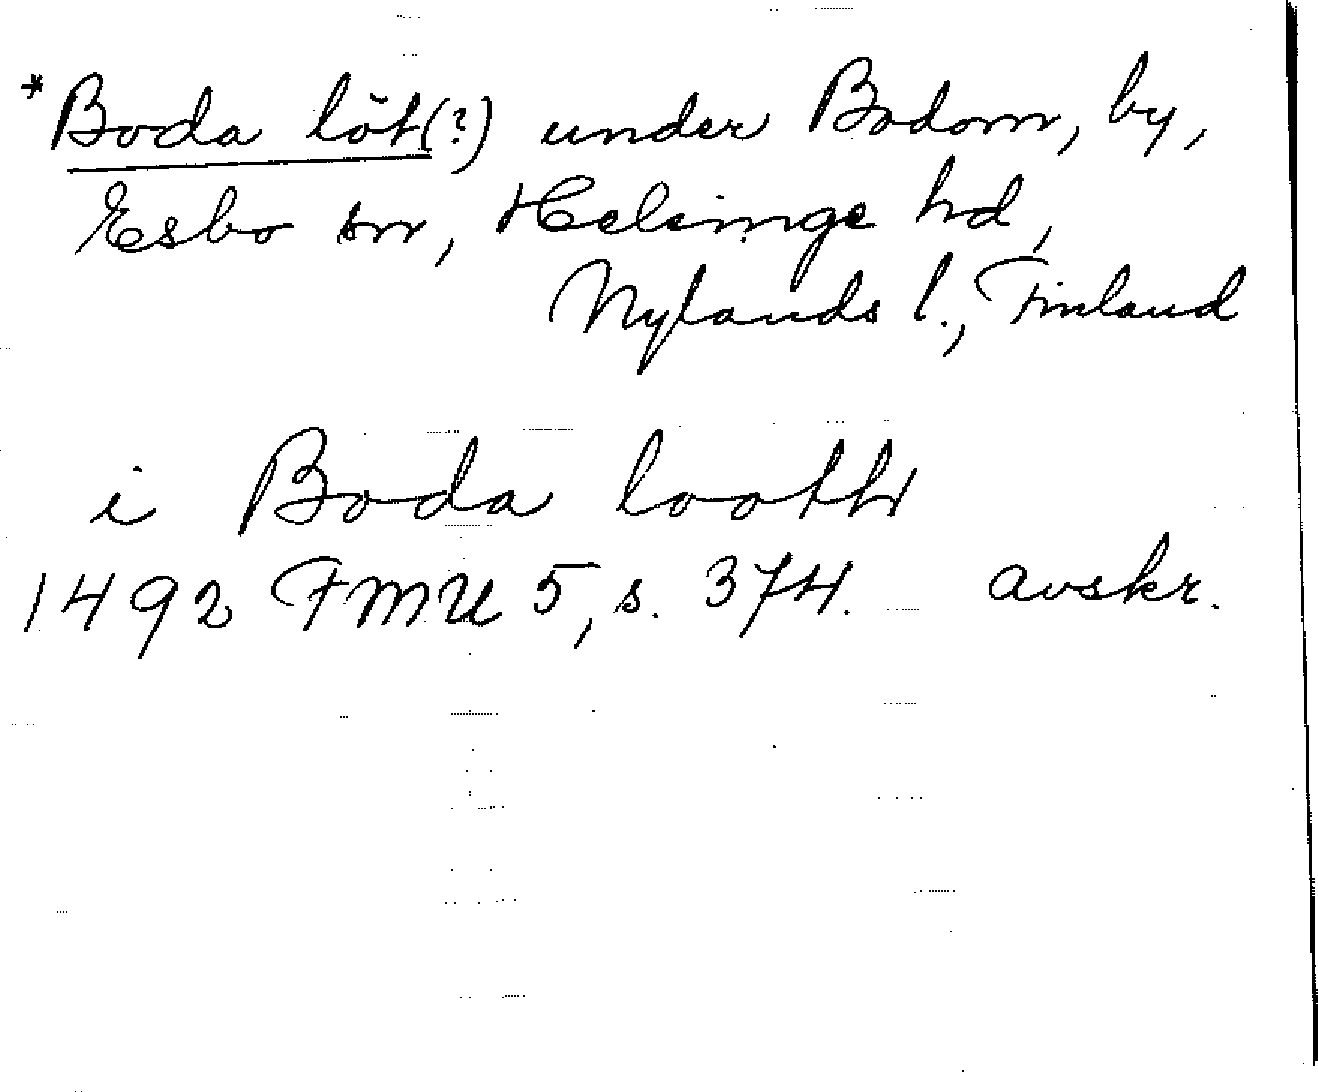 *Boda löt(?) under Bodom, by,
Esbo sn, Helsinge hd,
Nylands l., Finland
i Boda lootth
1492 FMU 5, s. 374. avskr.